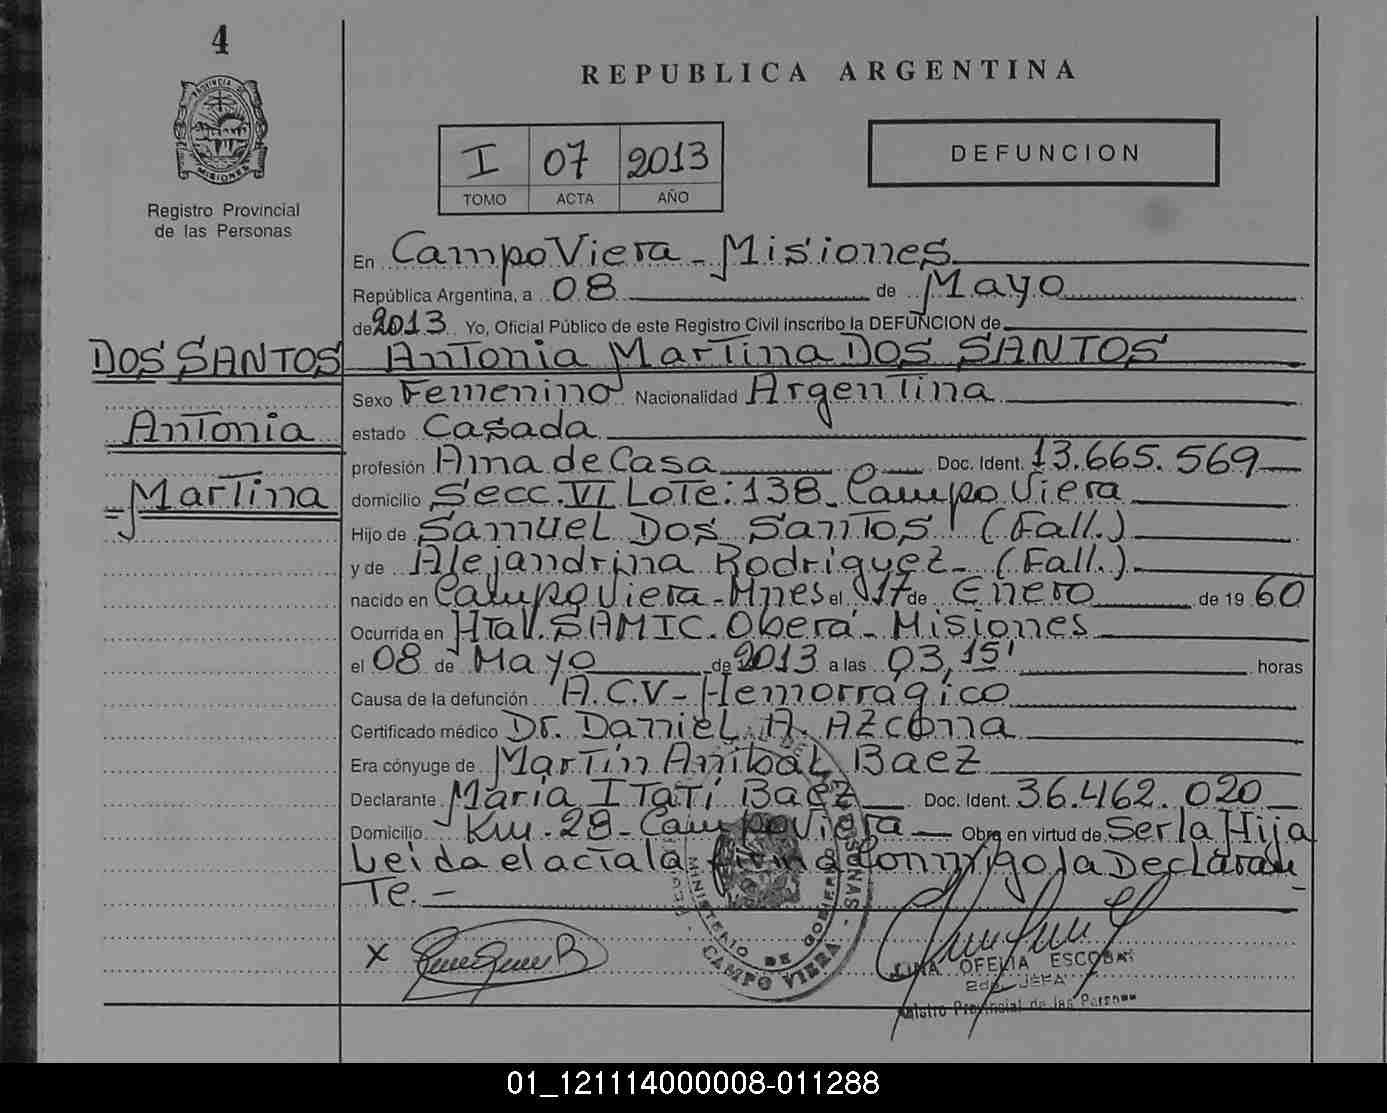 4
PROVINCIA DE
MISIONES
Registro Provincial
de las Personas
DOS SANTOS
Antonia
Martina
REPUBLICA ARGENTINA
I 07 2013
TOMO ACTA AÑO
DEFUNCION
En Campo Viera - Misiones
República Argentina, a 08 de Mayo
de 2013 Yo, Oficial Público de este Registro Civil inscribo la DEFUNCION de
Antonia Martina DOS SANTOS
Sexo Femenino Nacionalidad Argentina
estado Casada
profesión Ama de Casa Doc. Ident. 13.665.569
domicilio Secc. VI Lote: 138 - Campo Viera
Hijo de Samuel Dos Santos (Fall.)
y de Alejandrina Rodriguez - (Fall.)
nacido en Campo Viera - Mnes el 17 de Enero de 19 60
Ocurrida en Htal. SAMIC. Oberá - Misiones
el 08 de Mayo de 2013 a las 03,15' horas
Causa de la defunción A.C.V - Hemorragico
Certificado médico Dr. Daniel A. Azcona
Era cónyuge de Martín Anibal Baez
Declarante María Itatí Baez Doc. Ident. 36.462.020
Domicilio Km. 28 - Campo Viera Obra en virtud de Ser la Hija
Leida el acta la firma Conmigo la Declaran
te. -
MINISTERIO DE GOBIERNO
- CAMPO VIERA -
X
LINA OFELIA ESCOBAR
2da. JEFA
Registro Provincial de las Personas
01_121114000008-011288